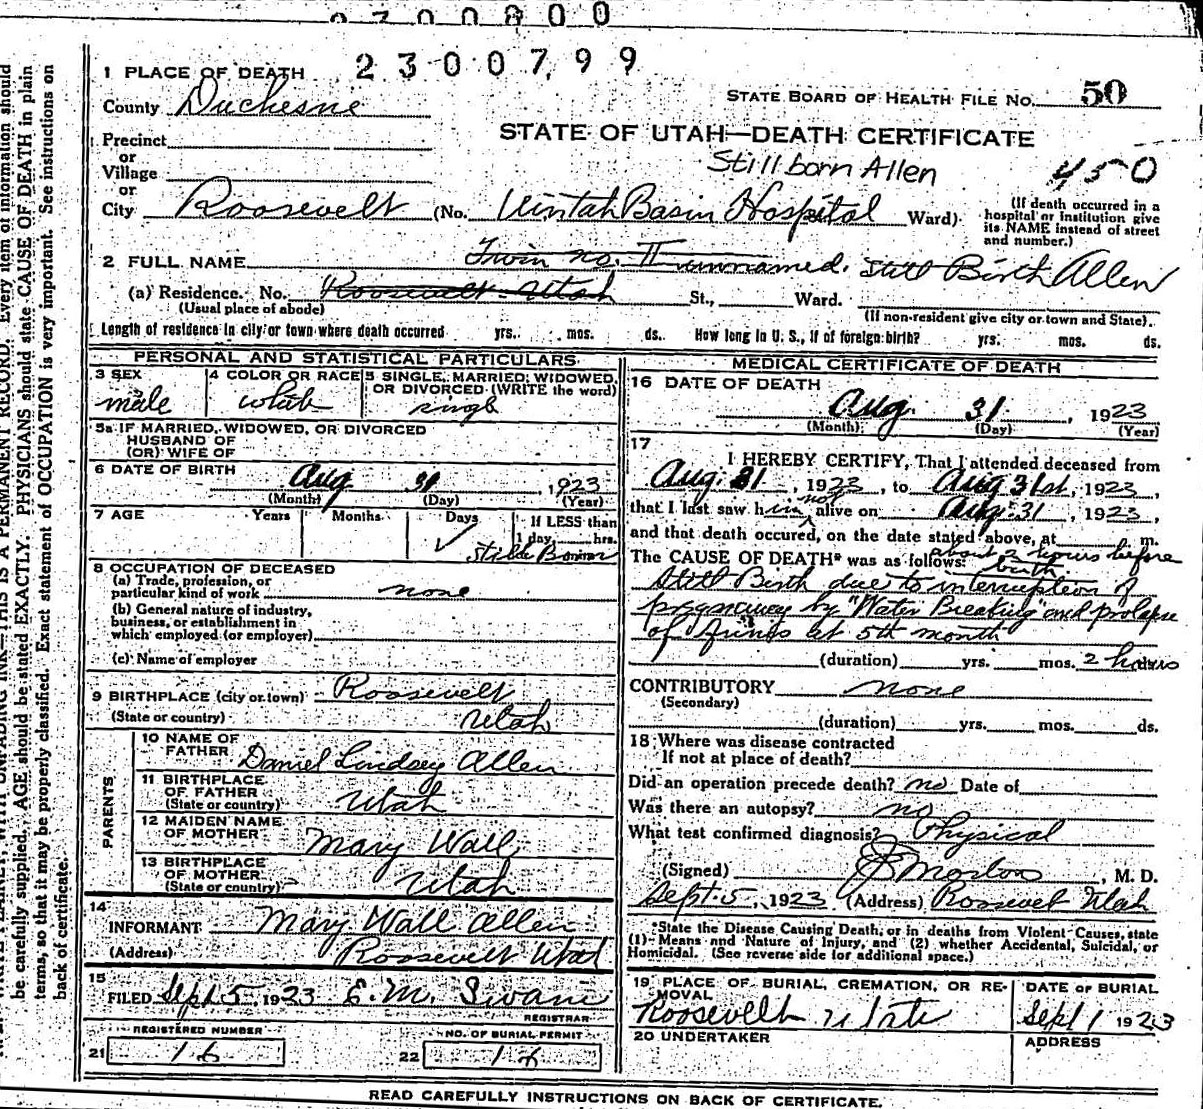 2300800
2300799
1 PLACE OF DEATH
County Duchesne
STATE BOARD OF HEALTH FILE No. 50
STATE OF UTAH—DEATH CERTIFICATE
Precinct
or
Village
or
Stillborn Allen
450
City Roosevelt (No. Uintah Basin Hospital Ward)
(If death occurred in a
hospital or institution give
its NAME instead of street
and number.)
2 FULL NAME Twin no. II unnamed. Still Birth Allen
(a) Residence. No. Roosevelt Utah St., Ward.
(Usual place of abode)
(If non-resident give city or town and State).
Length of residence in city or town where death occurred yrs. mos. ds. How long in U. S., if of foreign birth? yrs. mos. ds.
PERSONAL AND STATISTICAL PARTICULARS
3 SEX
male
4 COLOR OR RACE
white
5 SINGLE, MARRIED, WIDOWED, OR DIVORCED (WRITE the word)
single
5a IF MARRIED, WIDOWED, OR DIVORCED
HUSBAND OF
(OR) WIFE OF
6 DATE OF BIRTH Aug 31, 1923
(Month) (Day) (Year)
7 AGE Years Months Days If LESS than
1 day, hrs.
✓ Still Born
8 OCCUPATION OF DECEASED
(a) Trade, profession, or
particular kind of work none
(b) General nature of industry,
business, or establishment in
which employed (or employer)
(c) Name of employer
9 BIRTHPLACE (city or town) Roosevelt
(State or country) Utah
PARENTS
10 NAME OF
FATHER Daniel Lindsey Allen
11 BIRTHPLACE
OF FATHER
(State or country) Utah
12 MAIDEN NAME
OF MOTHER Mary Wall
13 BIRTHPLACE
OF MOTHER
(State or country) Utah
14
INFORMANT Mary Wall Allen
(Address) Roosevelt Utah
15
FILED Sept 5, 1923 E. M. Swain
REGISTRAR
REGISTERED NUMBER
21 16
NO. OF BURIAL PERMIT
22 16
MEDICAL CERTIFICATE OF DEATH
16 DATE OF DEATH
Aug. 31, 1923
(Month) (Day) (Year)
17
I HEREBY CERTIFY, That I attended deceased from
Aug. 31, 1923, to Aug 31st, 1923,
that I last saw him not alive on Aug. 31, 1923,
and that death occured, on the date stated above, at m.
about 2 hours before
The CAUSE OF DEATH* was as follows: birth.
Still Birth due to interruption of
pregnancy by "Water Breaking" and prolapse
of funis at 5th month
(duration) yrs. mos. 2 hours
CONTRIBUTORY none
(Secondary)
(duration) yrs. mos. ds.
18 Where was disease contracted
If not at place of death?
Did an operation precede death? no Date of
Was there an autopsy? no
What test confirmed diagnosis? Physical
(Signed) J Morton, M. D.
Sept. 5, 1923 (Address) Roosevelt Utah
*State the Disease Causing Death, or in deaths from Violent Causes, state
(1) Means and Nature of Injury, and (2) whether Accidental, Suicidal, or
Homicidal. (See reverse side for additional space.)
19 PLACE OF BURIAL, CREMATION, OR RE-
MOVAL
Roosevelt Utah
DATE OF BURIAL
Sept 1 1923
20 UNDERTAKER
ADDRESS
READ CAREFULLY INSTRUCTIONS ON BACK OF CERTIFICATE.
THIS IS A PERMANENT RECORD. Every item of information should
be carefully supplied. AGE should be stated EXACTLY. PHYSICIANS should state CAUSE OF DEATH in plain
terms, so that it may be properly classified. Exact statement of OCCUPATION is very important. See instructions on
back of certificate.